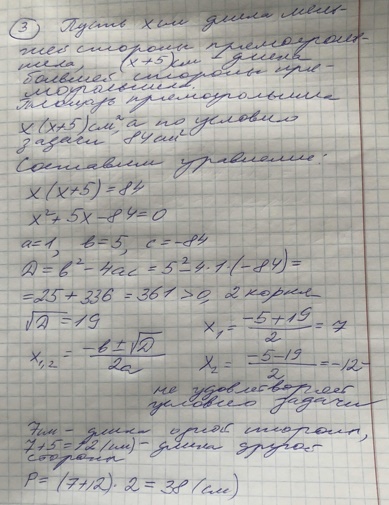 ③ Пусть x см длина мень-
шей стороны прямоуголь-
ника, (x+5) см - длина
большей стороны пря-
моугольника.
Площадь прямоугольника
x(x+5) см², а по условию
задачи 84 см²
Составим уравнение:
x(x+5)=84
x²+5x-84=0
a=1, b=5, c=-84
D=b²-4ac=5²-4·1·(-84)=
=25+336=361>0, 2 корня
√D=19 x₁ = (-5+19)/2 = 7
x₁,₂ = (-b±√D)/2a x₂ = (-5-19)/2 = -12-
не удовлетворяет
условию задачи
7см - длина одной стороны,
7+5=12(см) - длина другой
стороны
P=(7+12)·2=38(см)